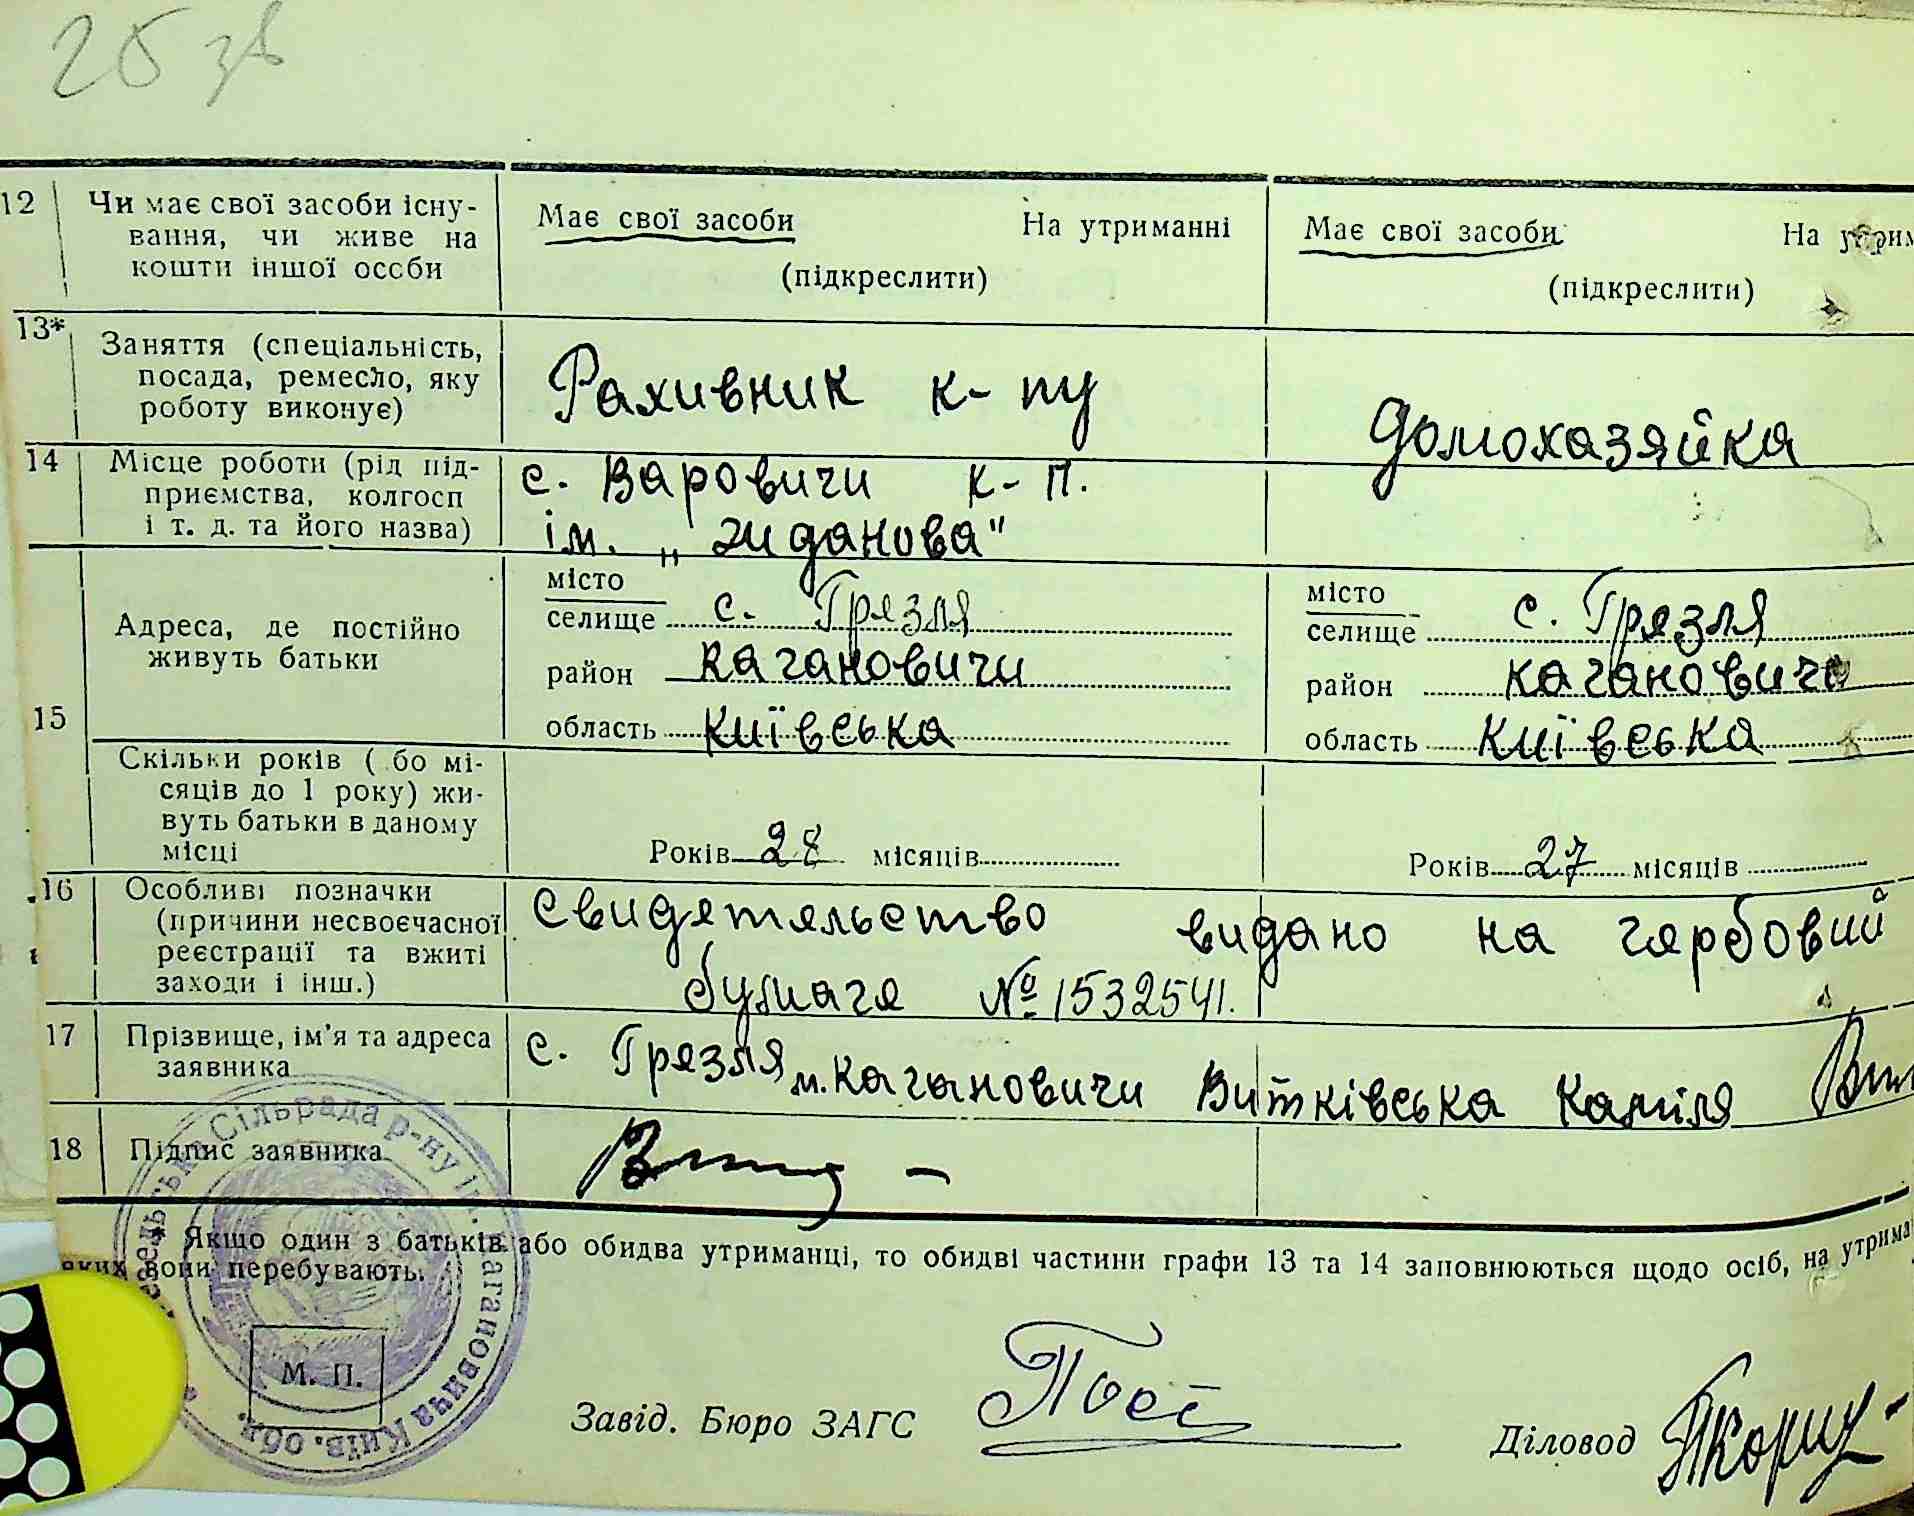 25 зв
12 Чи має свої засоби існу-
вання, чи живе на
кошти іншої особи
Має свої засоби На утриманні
(підкреслити)
Має свої засоби На утрим
(підкреслити)
13* Заняття (спеціальність,
посада, ремесло, яку
роботу виконує)
Рахивник к-пу
домохазяйка
14 Місце роботи (рід під-
приємства, колгосп
і т. д. та його назва)
с. Варовичи к-п.
ім. „Жданова"
15
Адреса, де постійно
живуть батьки
місто
селище с. Грязля
район Кагановичи
область Київська
місто
селище с. Грязля
район Кагановича
область Київська
Скільки років ( бо мі-
сяців до 1 року) жи-
вуть батьки в даному
місці
Років 28 місяців
Років 27 місяців
16 Особливі позначки
(причини несвоєчасної
реєстрації та вжиті
заходи і інш.)
Свидетяльство видано на гярбовий
бумаге №1532541.
17 Прізвище, ім'я та адреса
заявника
с. Грязля м. Кагановичи Витківська Каміля
18 Підпис заявника
* Якщо один з батьків або обидва утриманці, то обидві частини графи 13 та 14 заповнюються щодо осіб, на утрима
яких вони перебувають.
Сільрада р-ну ім. Кагановича Київ. обл.
М. П.
Завід. Бюро ЗАГС
Діловод